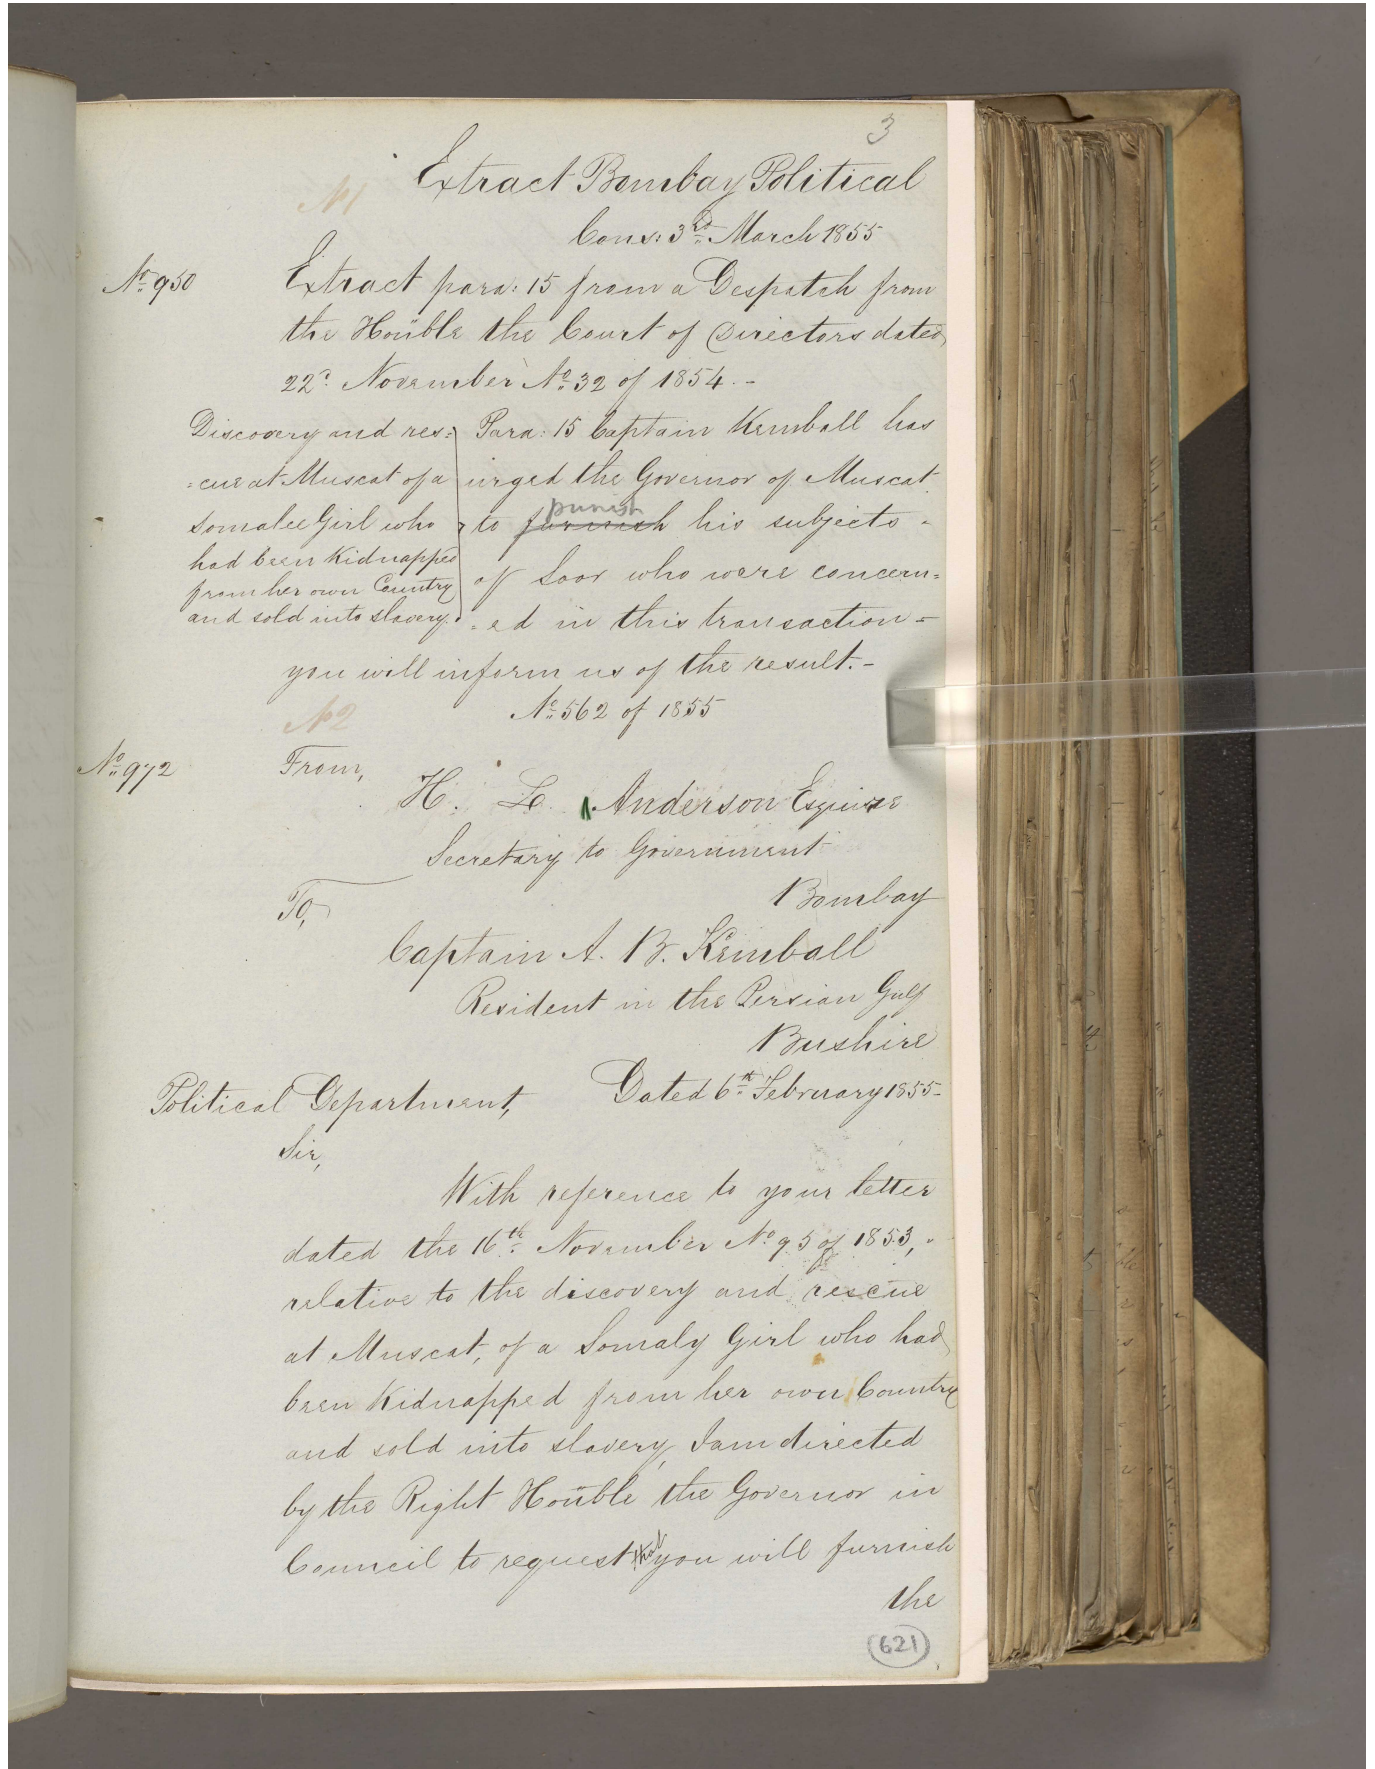 3
Extract Bombay Political
Cons: 3rd March 1855
No 1
No 950
Extract para: 15 from a Despatch from
the Honble the Court of Directors dated
22d November No 32 of 1854.-
Discovery and res=
=cue at Muscat of a
Somalee Girl who
had been Kidnapped
from her own Country
and sold into slavery.
Para: 15 Captain Kemball has
urged the Governor of Muscat
punish
to furnish his subjects -
of Soor who were concern=
=ed in this transaction -
you will inform us of the result.-
No 2
No 562 of 1855
No 972
From,
H. L. Anderson Esquire
Secretary to Government
Bombay
To,
Captain A. B. Kemball
Resident in the Persian Gulf
Bushire
Political Department, Dated 6th February 1855-
Sir,
With reference to your letter
dated the 16th November No 95 of 1853,
relative to the discovery and rescue
at Muscat, of a Somaly Girl who had
been Kidnapped from her own Country
and sold into slavery, I am directed
by the Right Honble the Governor in
Council to request that you will furnish
the
621